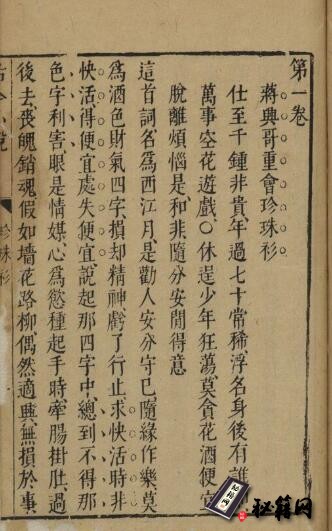 第一卷
蔣興哥重會珍珠衫
仕至千鍾非貴年過七十常稀浮名身後有誰
萬事空花遊戲○休逞少年狂蕩莫貪花酒便宜
脫離煩惱是和非隨分安閒得意
這首詞名爲西江月是勸人安分守已隨緣作樂莫
爲酒色財氣四字損却精神虧了行止求快活時非
快活得便宜處失便宜說起那四字中總到不得那
色字利害眼是情媒心爲慾種起手時牽腸掛肚過
後去喪魄銷魂假如墻花路柳偶然適興無損於事
珍珠衫
秘籍网